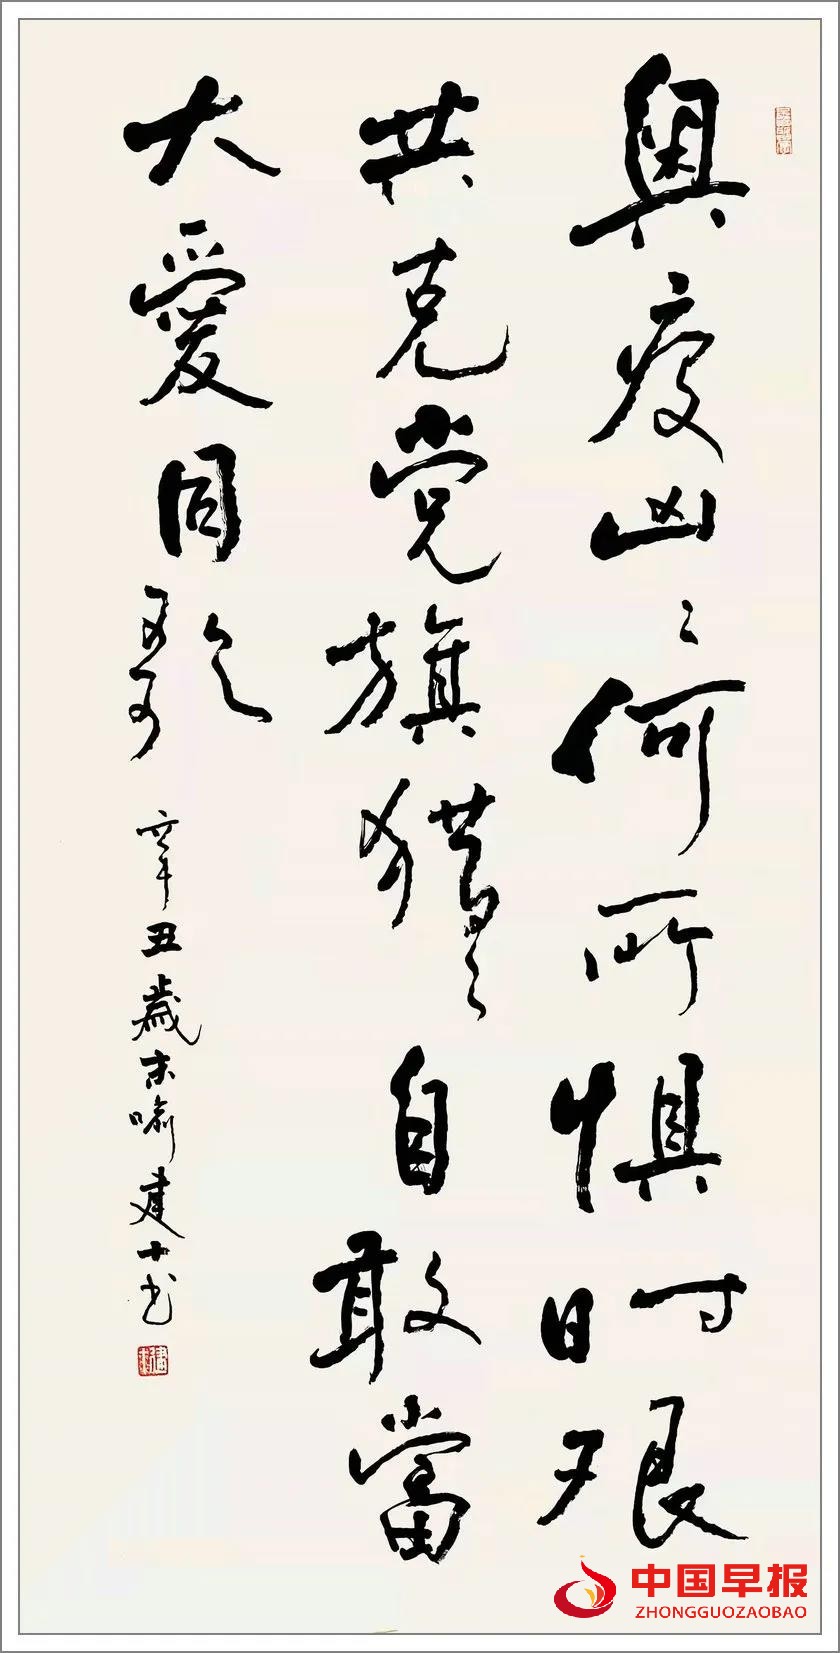 奥疫凶々何所惧时艰
共克党旗猎々自敢當
大愛同歌
辛丑歲末喻建十书
中国早报
ZHONGGUOZAOBAO